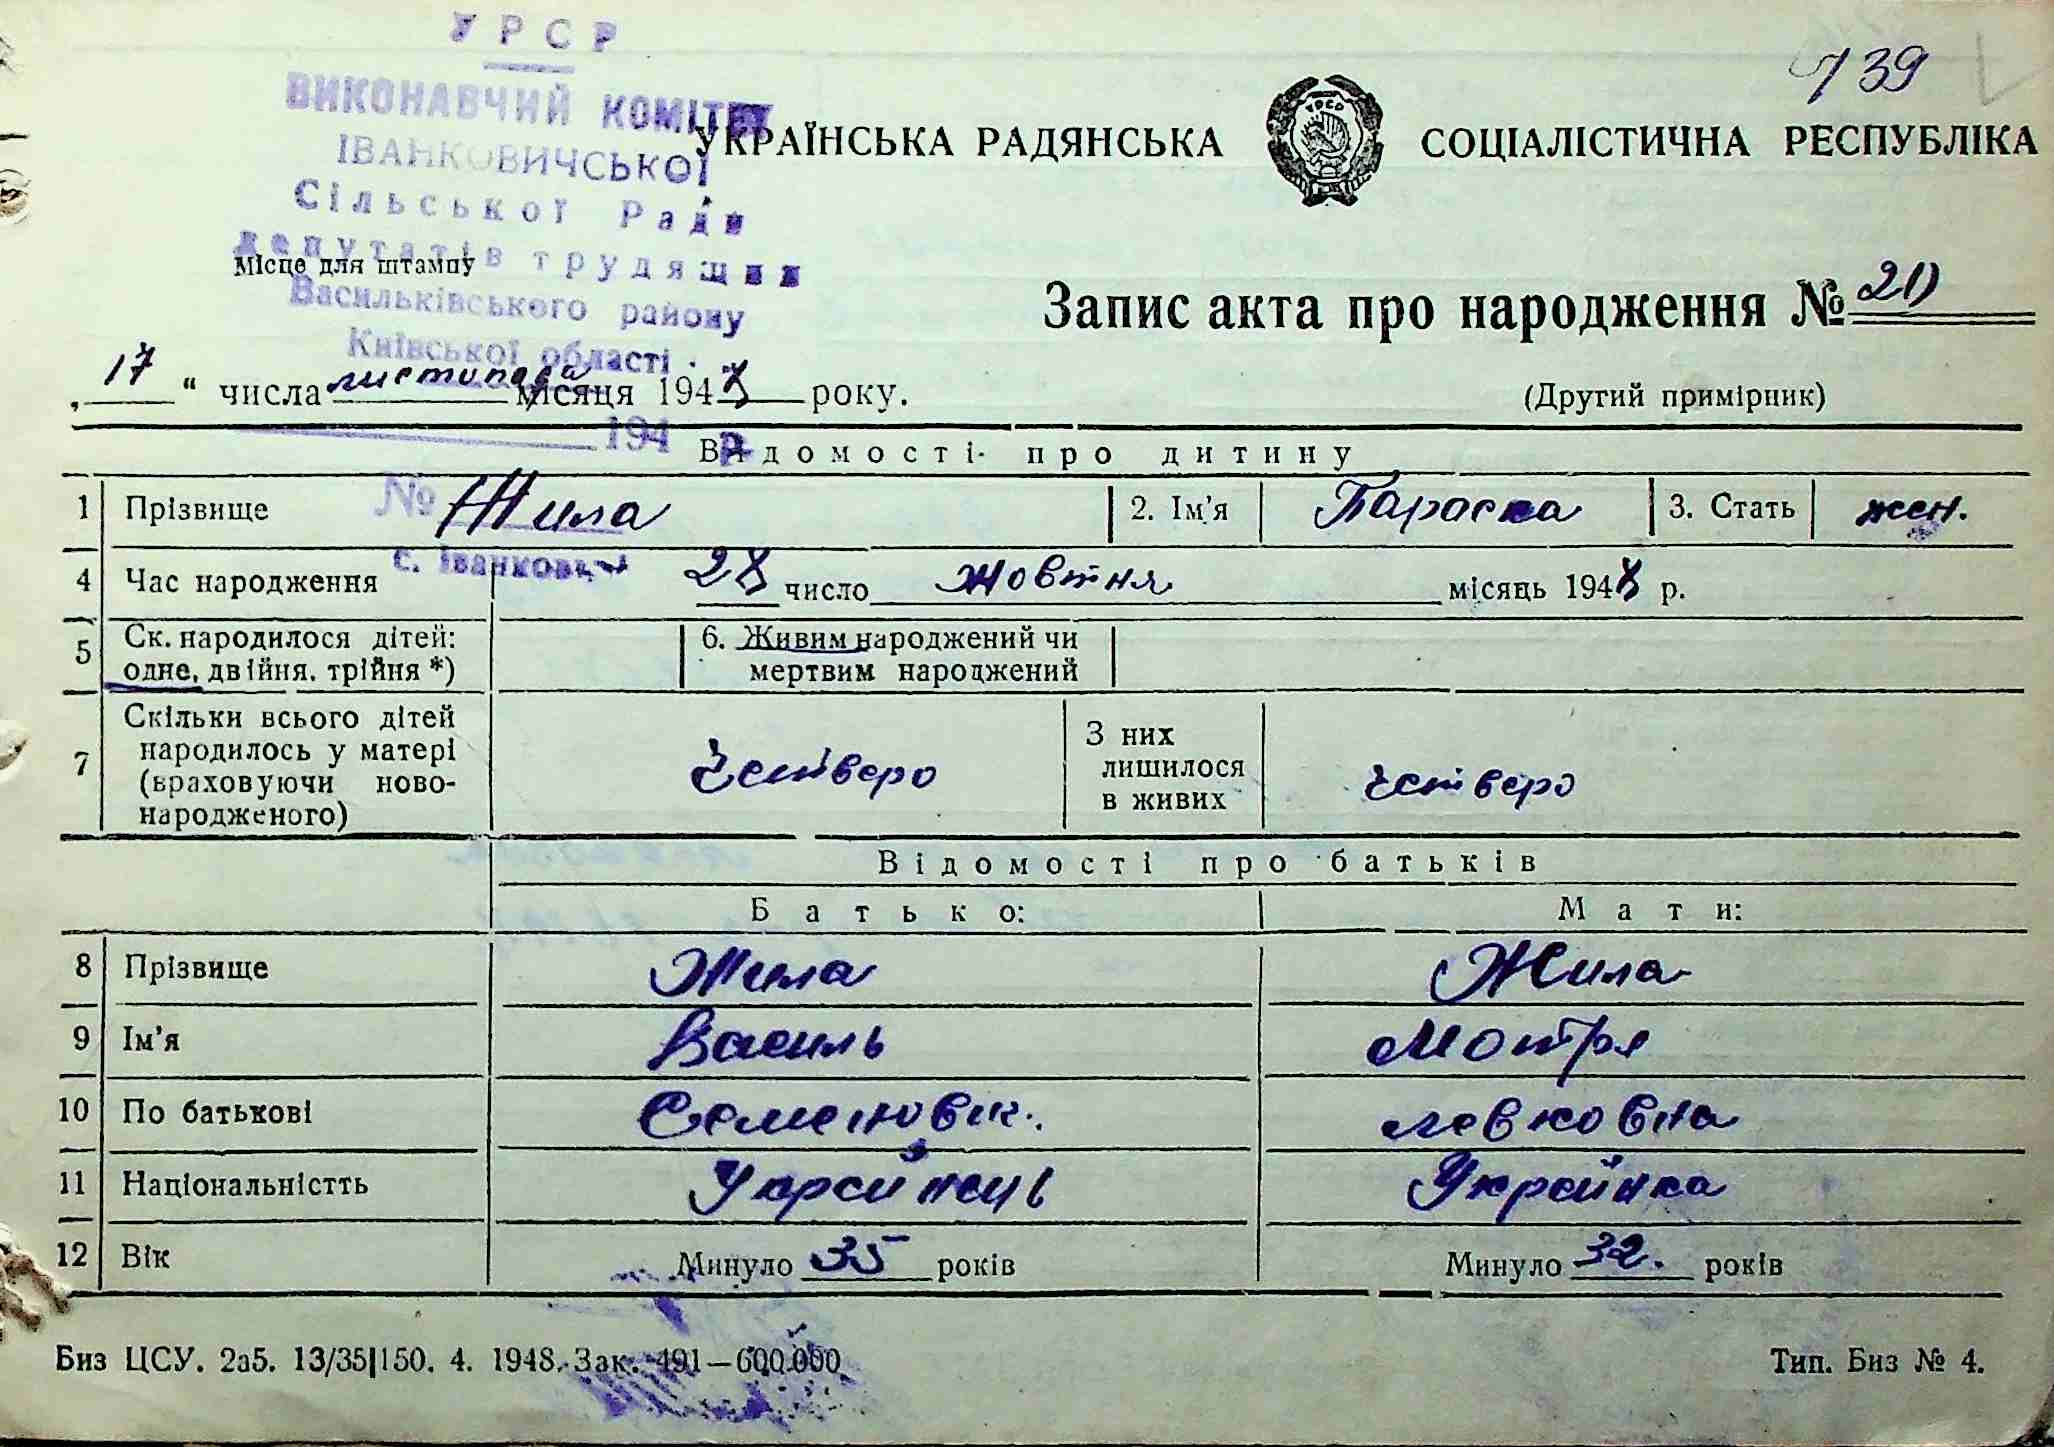 УРСР
739
ВИКОНАВЧИЙ КОМІТЕТ
УКРАЇНСЬКА РАДЯНСЬКА СОЦІАЛІСТИЧНА РЕСПУБЛІКА
УРСР
ІВАНКОВИЧСЬКОЇ
Сільської Ради
депутатів трудящих
Місце для штампу
Васильківського району
Київської області
Запис акта про народження № 20
„17“ числа листопада місяця 1948 року.
(Другий примірник)
194 р.
Відомості про дитину
1 Прізвище Жила 2. Ім'я Параска 3. Стать жен.
№
с. Іванковичі
4 Час народження 28 число жовтня місяць 1948 р.
5 Ск. народилося дітей: одне, двійня, трійня *)
6. Живим народжений чи мертвим народжений
7 Скільки всього дітей народилось у матері (враховуючи ново-народженого) Четверо
З них лишилося в живих четверо
Відомості про батьків
Батько: Мати:
8 Прізвище Жила Жила
9 Ім'я Василь Мотря
10 По батькові Семенович. Левковна
11 Національністть Українець Українка
12 Вік Минуло 35 років Минуло 32. років
Биз ЦСУ. 2а5. 13/35|150. 4. 1948. Зак. 491—600.000
Тип. Биз № 4.